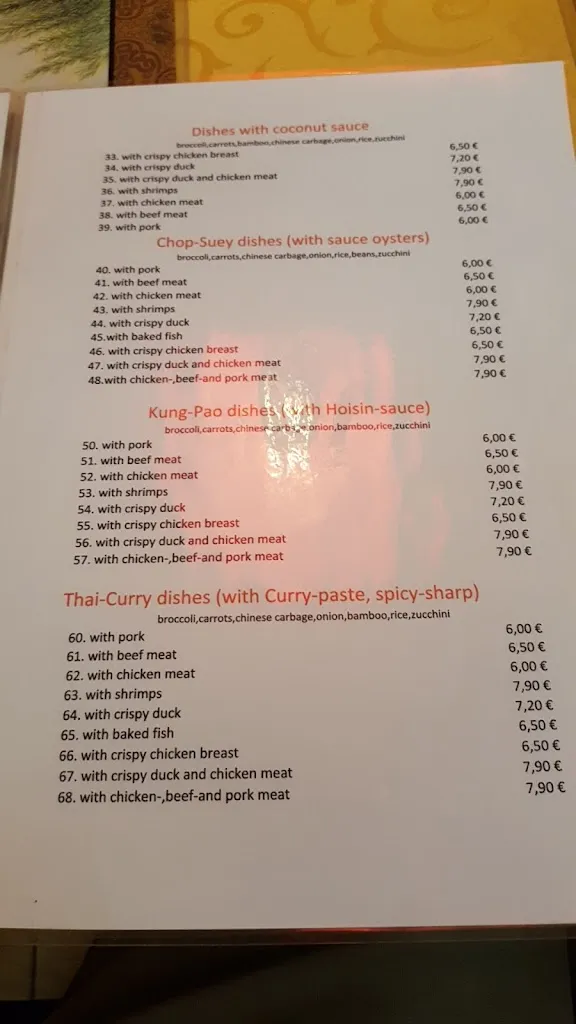 Dishes with coconut sauce
broccoli,carrots,bamboo,chinese carbage,onion,rice,zucchini
33. with crispy chicken breast 6,50 €
34. with crispy duck 7,20 €
35. with crispy duck and chicken meat 7,90 €
36. with shrimps 7,90 €
37. with chicken meat 6,00 €
38. with beef meat 6,50 €
39. with pork 6,00 €
Chop-Suey dishes (with sauce oysters)
broccoli,carrots,chinese carbage,onion,rice,beans,zucchini
40. with pork 6,00 €
41. with beef meat 6,50 €
42. with chicken meat 6,00 €
43. with shrimps 7,90 €
44. with crispy duck 7,20 €
45.with baked fish 6,50 €
46. with crispy chicken breast 6,50 €
47. with crispy duck and chicken meat 7,90 €
48.with chicken-,beef-and pork meat 7,90 €
Kung-Pao dishes (with Hoisin-sauce)
broccoli,carrots,chinese carbage,onion,bamboo,rice,zucchini
50. with pork 6,00 €
51. with beef meat 6,50 €
52. with chicken meat 6,00 €
53. with shrimps 7,90 €
54. with crispy duck 7,20 €
55. with crispy chicken breast 6,50 €
56. with crispy duck and chicken meat 7,90 €
57. with chicken-,beef-and pork meat 7,90 €
Thai-Curry dishes (with Curry-paste, spicy-sharp)
broccoli,carrots,chinese carbage,onion,bamboo,rice,zucchini
60. with pork 6,00 €
61. with beef meat 6,50 €
62. with chicken meat 6,00 €
63. with shrimps 7,90 €
64. with crispy duck 7,20 €
65. with baked fish 6,50 €
66. with crispy chicken breast 6,50 €
67. with crispy duck and chicken meat 7,90 €
68. with chicken-,beef-and pork meat 7,90 €